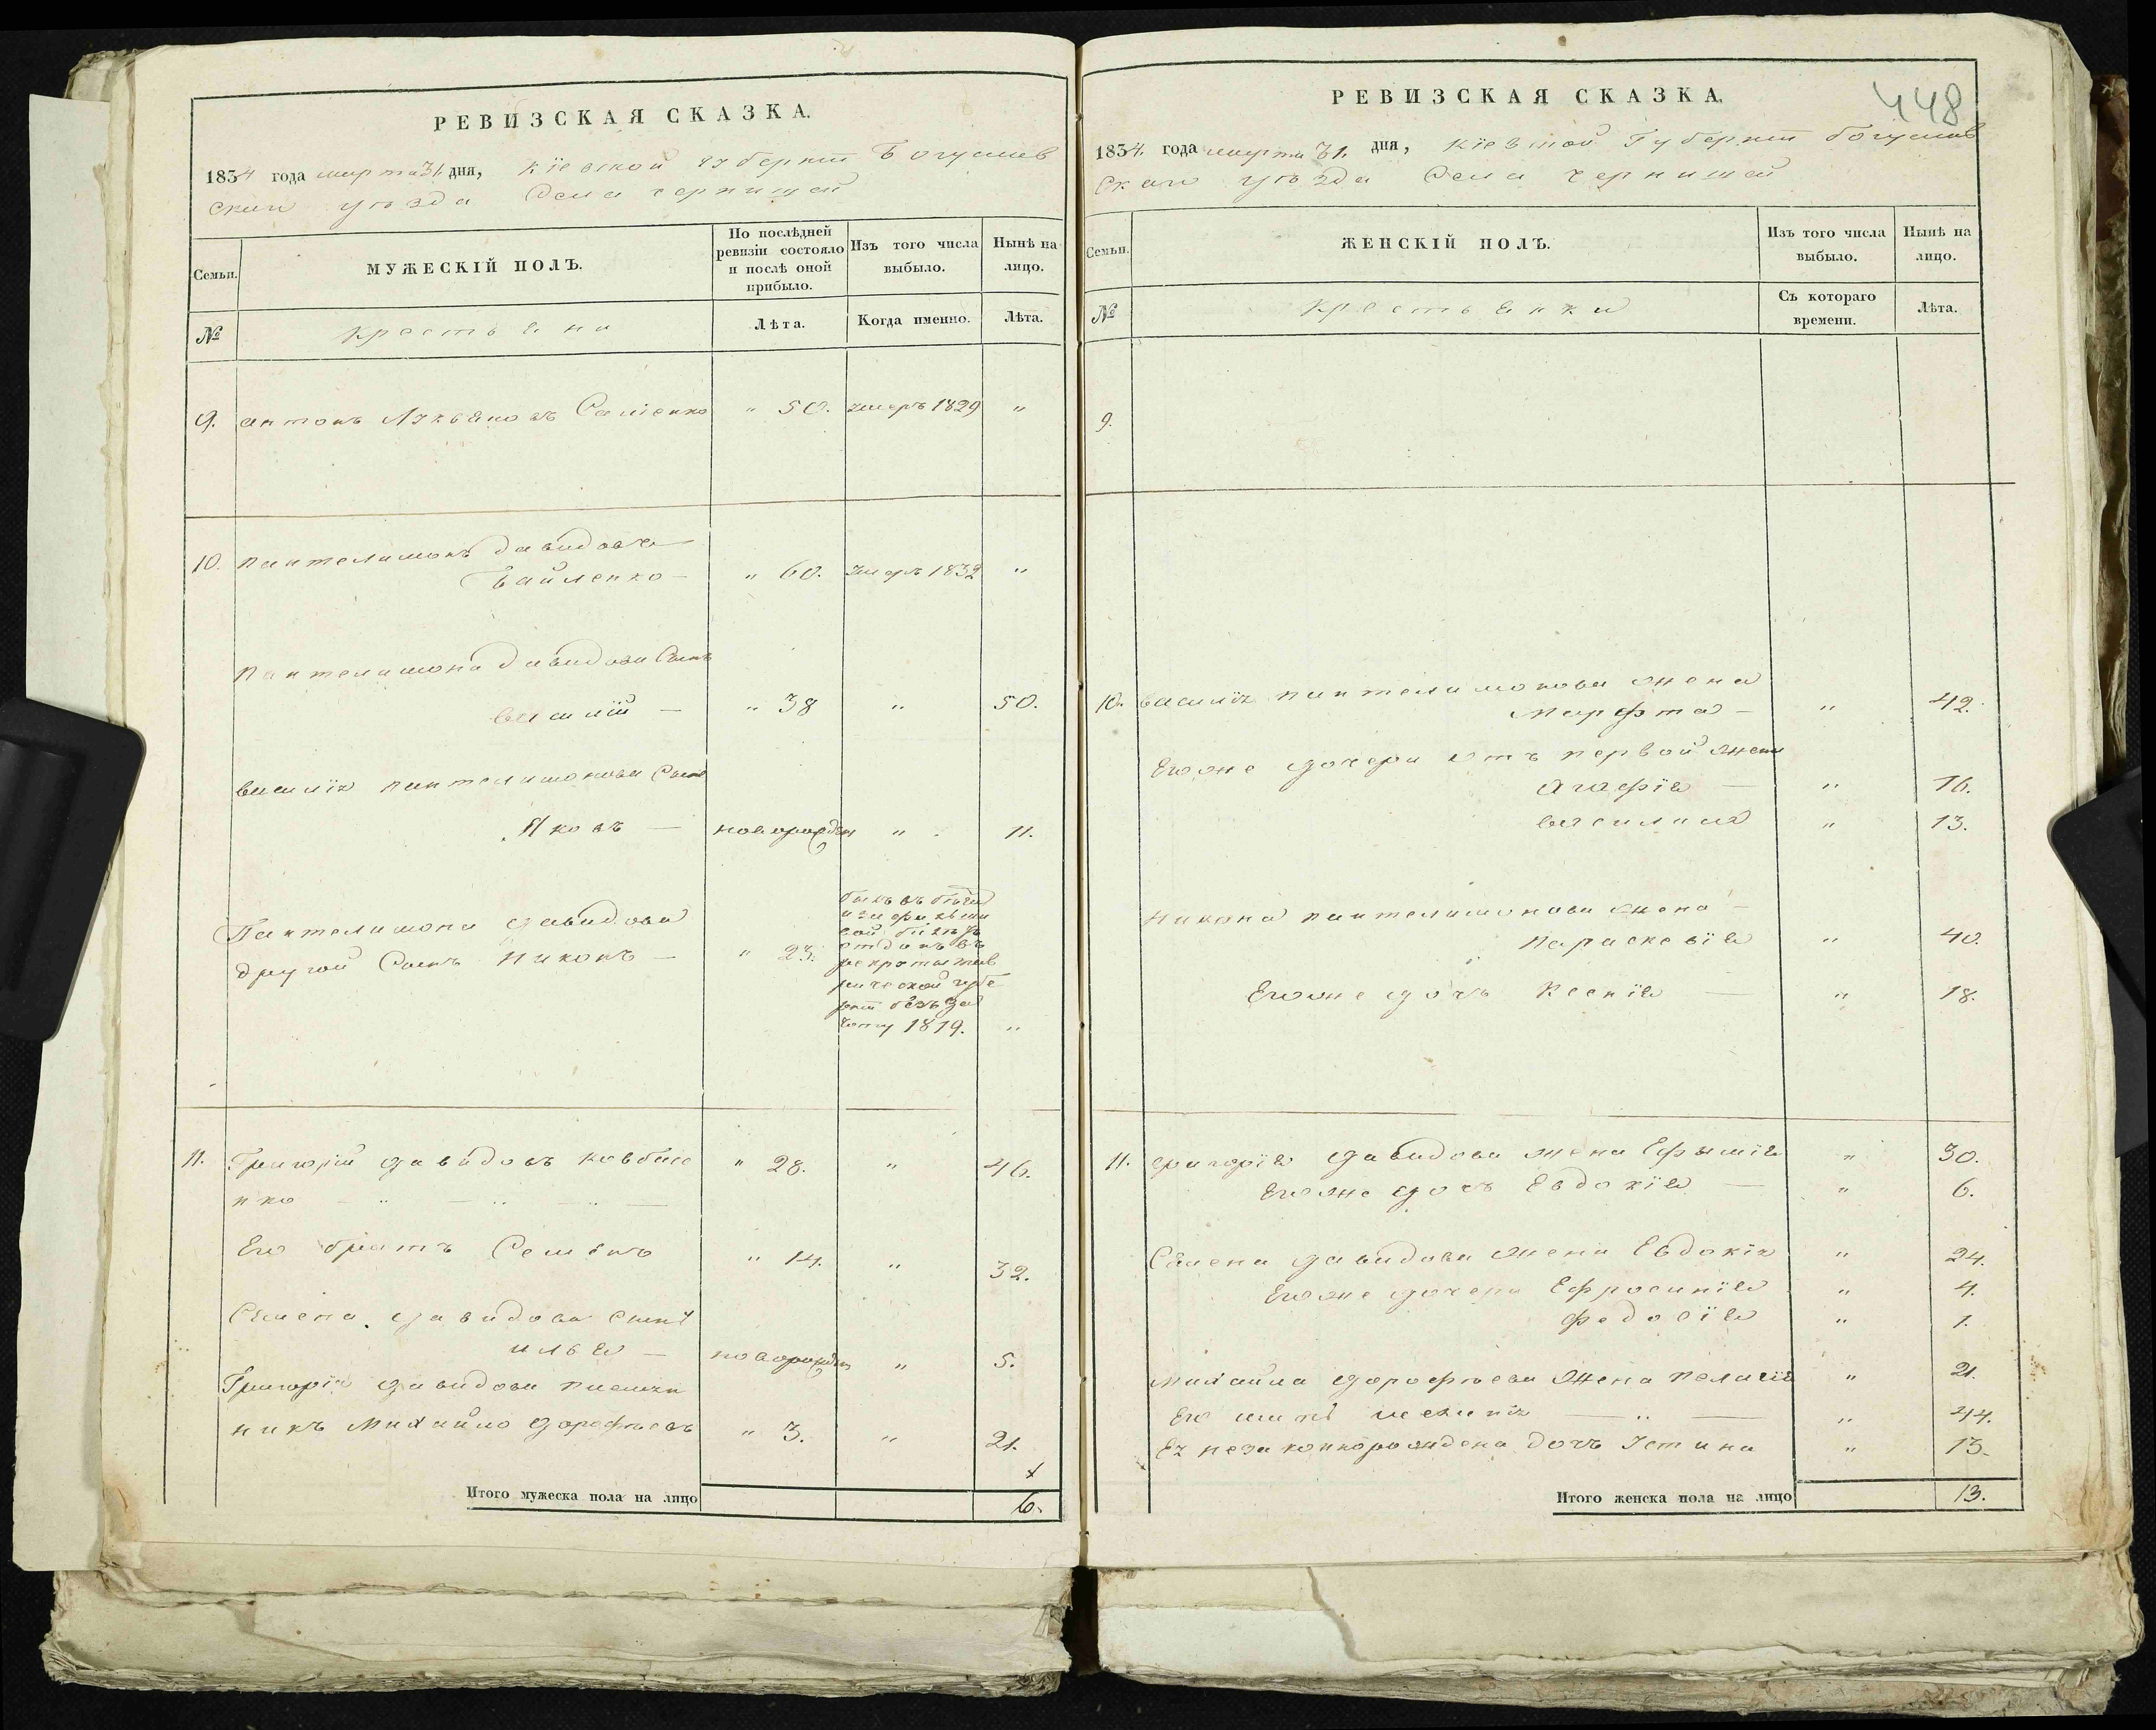 РЕВИЗСКАЯ СКАЗКА.
1834 года марта 31. дня, Кіевской губерніи Богуслав
скаго уѣзда Села чернишей
Семьи.
МУЖЕСКІЙ ПОЛЪ.
По послѣдней ревизіи состояло и послѣ оной прибыло.
Изъ того числа выбыло.
Нынѣ на лицо.
№
крестьяни
Лѣта.
Когда именно.
Лѣта.
9. антонъ Лукьяновъ " 50. умеръ 1829 "
10. пантелимонъ давидовъ
" 60. умеръ 1832 "
Пантелимона давидова Сынъ
василій — " 38 " 50.
василія пантелимонова Сынъ
Яковъ — новорожден " 11.
Пантелимона давидова
другой Сынъ Никонъ — " 23.
отданъ въ
губе
рніи безъ за
чоту 1819. "
11. Григорій давидовъ ковбасе
нко " 28. " 46.
Его братъ Семенъ " 14. " 32.
Семена давидова Сынъ
илья — новорожден " 5.
Григорія давидова племян
никъ Михайло дорофѣевъ " 3. " 21.
Итого мужеска пола на лицо 6.
448
РЕВИЗСКАЯ СКАЗКА.
1834. года марта 31. дня, Кіевской Губерніи богуслав
скаго уѣзда Села чернишей
Семьи.
ЖЕНСКІЙ ПОЛЪ.
Изъ того числа выбыло.
Нынѣ на лицо.
№
крестьянки
Съ котораго времени.
Лѣта.
9.
10. василія пантелимонова жена
Марфта — " 42.
Егоже дочери отъ первой жены
Агафія — " 16.
василиса " 13.
Никона пантелимонова жена —
параскевія " 40.
Егоже дочь Ксенія — " 18.
11. григорія давидова жена Ефымія " 30.
Егоже дочь Евдокія — " 6.
Семена давидова жена Евдокія " 24.
Егоже дочери Ефросинія " 4.
федосія " 1.
Михайла дорофѣева жена пелагія " 21.
Его " 44.
Ея незаконнорождена дочь Устина " 13.
Итого женска пола на лицо 13.